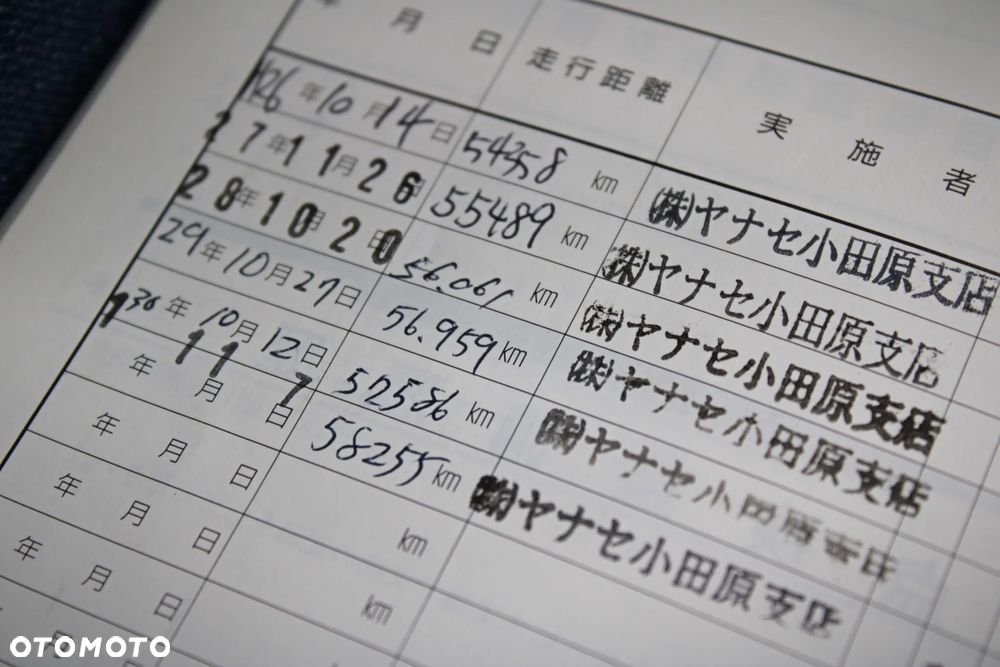 年 月 日 走行距離 実施者
26年10月14日 54358 km ㈱ヤナセ小田原支店
27年11月26日 55489 km ㈱ヤナセ小田原支店
28年10月20日 56.061 km ㈱ヤナセ小田原支店
29年10月27日 56.959 km ㈱ヤナセ小田原支店
30年10月12日 52586 km ㈱ヤナセ小田原支店
1年11月7日 58255 km ㈱ヤナセ小田原支店
年 月 日 km
年 月 日 km
年 月 日
月
OTOMOTO